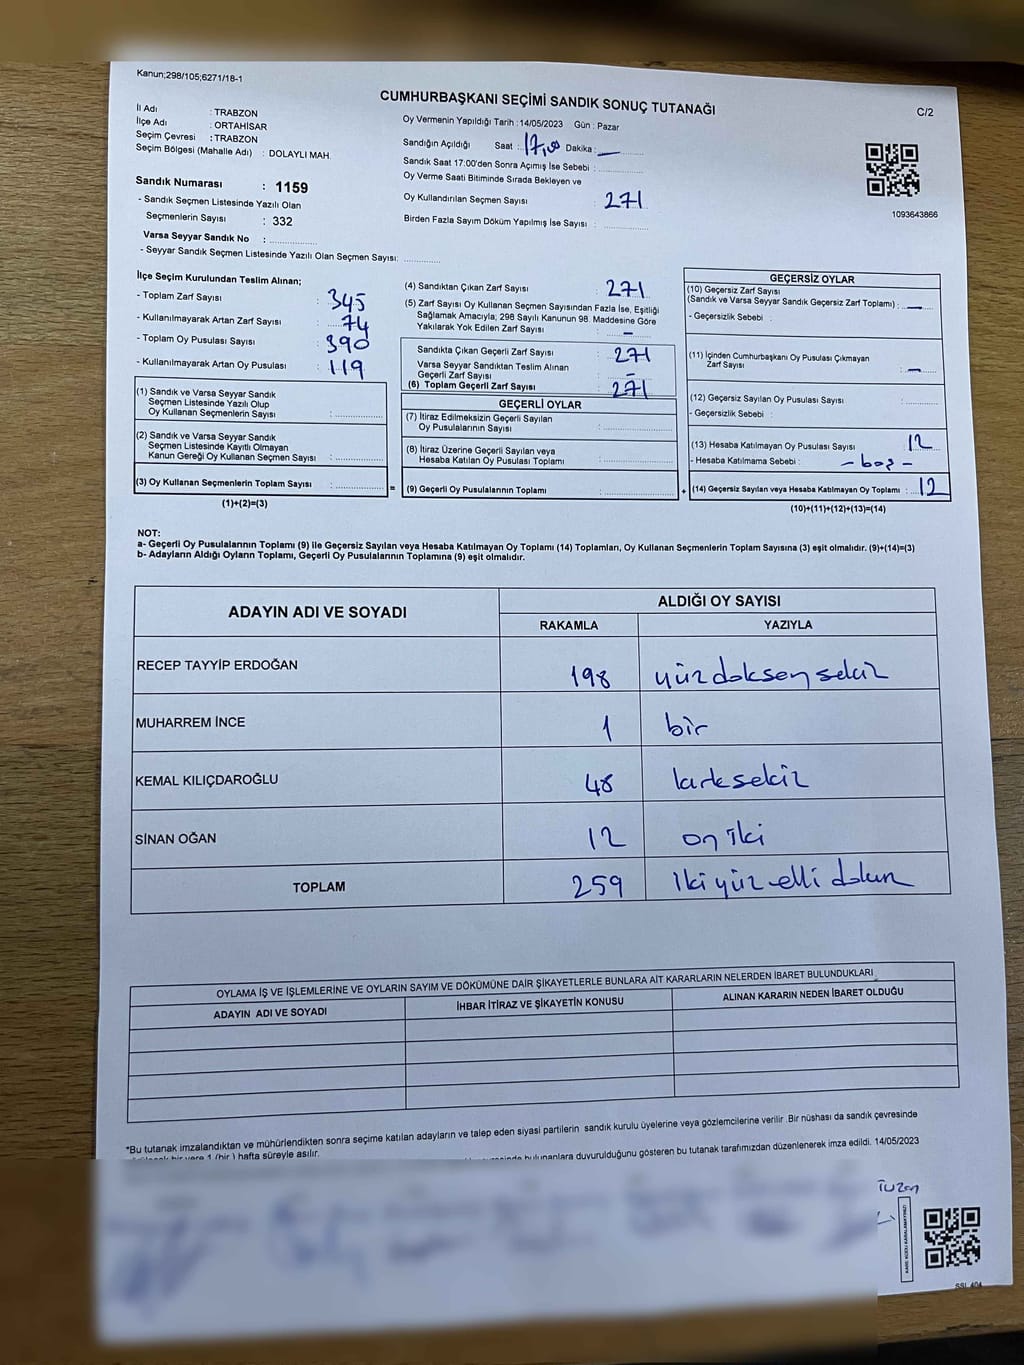 Kanun;298/105;6271/18-1
CUMHURBAŞKANI SEÇİMİ SANDIK SONUÇ TUTANAĞI
C/2
İl Adı : TRABZON
İlçe Adı : ORTAHİSAR
Seçim Çevresi : TRABZON
Seçim Bölgesi (Mahalle Adı) : DOLAYLI MAH.
Sandık Numarası : 1159
- Sandık Seçmen Listesinde Yazılı Olan
Seçmenlerin Sayısı : 332
Varsa Seyyar Sandık No :
- Seyyar Sandık Seçmen Listesinde Yazılı Olan Seçmen Sayısı:
Oy Vermenin Yapıldığı Tarih :14/05/2023 Gün : Pazar
Sandığın Açıldığı Saat : 17,00 Dakika: —
Sandık Saat 17:00'den Sonra Açımış İse Sebebi :
Oy Verme Saati Bitiminde Sırada Bekleyen ve
Oy Kullandırılan Seçmen Sayısı : 271
Birden Fazla Sayım Döküm Yapılmış İse Sayısı :
1093643866
İlçe Seçim Kurulundan Teslim Alınan;
- Toplam Zarf Sayısı : 345
- Kullanılmayarak Artan Zarf Sayısı : 74
- Toplam Oy Pusulası Sayısı : 390
- Kullanılmayarak Artan Oy Pusulası : 119
(1) Sandık ve Varsa Seyyar Sandık
Seçmen Listesinde Yazılı Olup
Oy Kullanan Seçmenlerin Sayısı :
(2) Sandık ve Varsa Seyyar Sandık
Seçmen Listesinde Kayıtlı Olmayan
Kanun Gereği Oy Kullanan Seçmen Sayısı :
(3) Oy Kullanan Seçmenlerin Toplam Sayısı : =
(1)+(2)=(3)
(4) Sandıktan Çıkan Zarf Sayısı : 271
(5) Zarf Sayısı Oy Kullanan Seçmen Sayısından Fazla İse, Eşitliği
Sağlamak Amacıyla; 298 Sayılı Kanunun 98. Maddesine Göre
Yakılarak Yok Edilen Zarf Sayısı : —
Sandıkta Çıkan Geçerli Zarf Sayısı : 271
Varsa Seyyar Sandıktan Teslim Alınan
Geçerli Zarf Sayısı : —
(6) Toplam Geçerli Zarf Sayısı : 271
GEÇERLİ OYLAR
(7) İtiraz Edilmeksizin Geçerli Sayılan
Oy Pusulalarının Sayısı :
(8) İtiraz Üzerine Geçerli Sayılan veya
Hesaba Katılan Oy Pusulası Toplamı :
(9) Geçerli Oy Pusulalarının Toplamı : +
GEÇERSİZ OYLAR
(10) Geçersiz Zarf Sayısı
(Sandık ve Varsa Seyyar Sandık Geçersiz Zarf Toplamı) : —
- Geçersizlik Sebebi :
(11) İçinden Cumhurbaşkanı Oy Pusulası Çıkmayan
Zarf Sayısı : —
(12) Geçersiz Sayılan Oy Pusulası Sayısı :
- Geçersizlik Sebebi :
(13) Hesaba Katılmayan Oy Pusulası Sayısı : 12
- Hesaba Katılmama Sebebi : - boş -
(14) Geçersiz Sayılan veya Hesaba Katılmayan Oy Toplamı : 12
(10)+(11)+(12)+(13)=(14)
NOT:
a- Geçerli Oy Pusulasının Toplamı (9) ile Geçersiz Sayılan veya Hesaba Katılmayan Oy Toplamı (14) Toplamları, Oy Kullanan Seçmenlerin Toplam Sayısına (3) eşit olmalıdır. (9)+(14)=(3)
b- Adayların Aldığı Oyların Toplamı, Geçerli Oy Pusulalarının Toplamına (9) eşit olmalıdır.
ADAYIN ADI VE SOYADI ALDIĞI OY SAYISI
RAKAMLA YAZIYLA
RECEP TAYYİP ERDOĞAN 198 yüz doksan sekiz
MUHARREM İNCE 1 bir
KEMAL KILIÇDAROĞLU 48 kırk sekiz
SİNAN OĞAN 12 on iki
TOPLAM 259 iki yüz elli dokuz
OYLAMA İŞ VE İŞLEMLERİNE VE OYLARIN SAYIM VE DÖKÜMÜNE DAİR ŞİKAYETLERLE BUNLARA AİT KARARLARIN NELERDEN İBARET BULUNDUKLARI
ADAYIN ADI VE SOYADI İHBAR İTİRAZ VE ŞİKAYETİN KONUSU ALINAN KARARIN NEDEN İBARET OLDUĞU
*Bu tutanak imzalandıktan ve mühürlendikten sonra seçime katılan adayların ve talep eden siyasi partilerin sandık kurulu üyelerine veya gözlemcilerine verilir .Bir nüshası da sandık çevresinde
bir yere 1 (bir ) hafta süreyle asılır.
bulunanlara duyurulduğunu gösteren bu tutanak tarafımızdan düzenlenerek imza edildi. 14/05/2023
KARE KODU KARALAMAYINIZ!
SSL 404